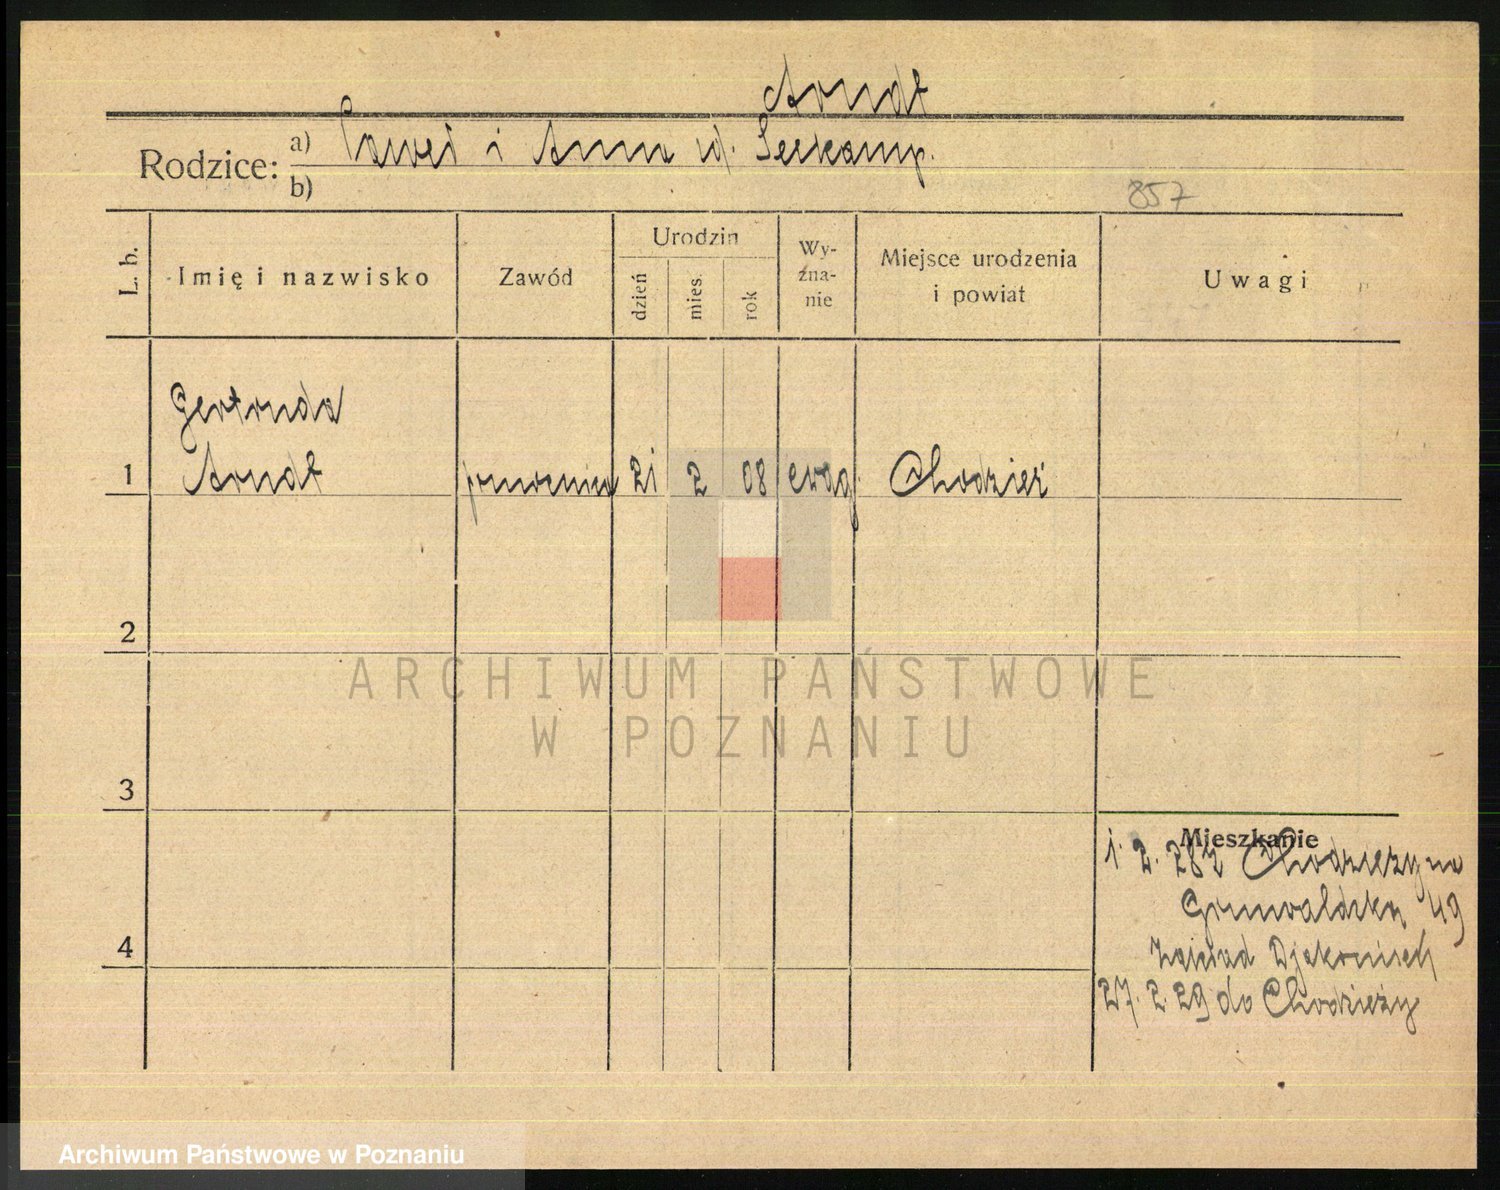 Arndt
Rodzice: a) Paweł i Anna ul. Seekamp.
b)
857
L. b.
Imię i nazwisko
Zawód
Urodzin
dzień
mies.
rok
Wy-
zna-
nie
Miejsce urodzenia
i powiat
Uwagi
Gertruda
1 Arndt 21 2 08 ewag. Chodzież
2
ARCHIWUM PAŃSTWOWE
W POZNANIU
3
Mieszkanie
1. 2. 28 z Chodzieży na
Grunwaldzka 49
4
Zakład Djakonisek
27. 2. 29 do Chodzieży
Archiwum Państwowe w Poznaniu